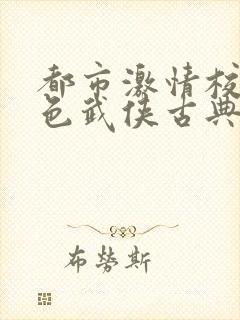 都市激情校
色武侠古典
布勞斯